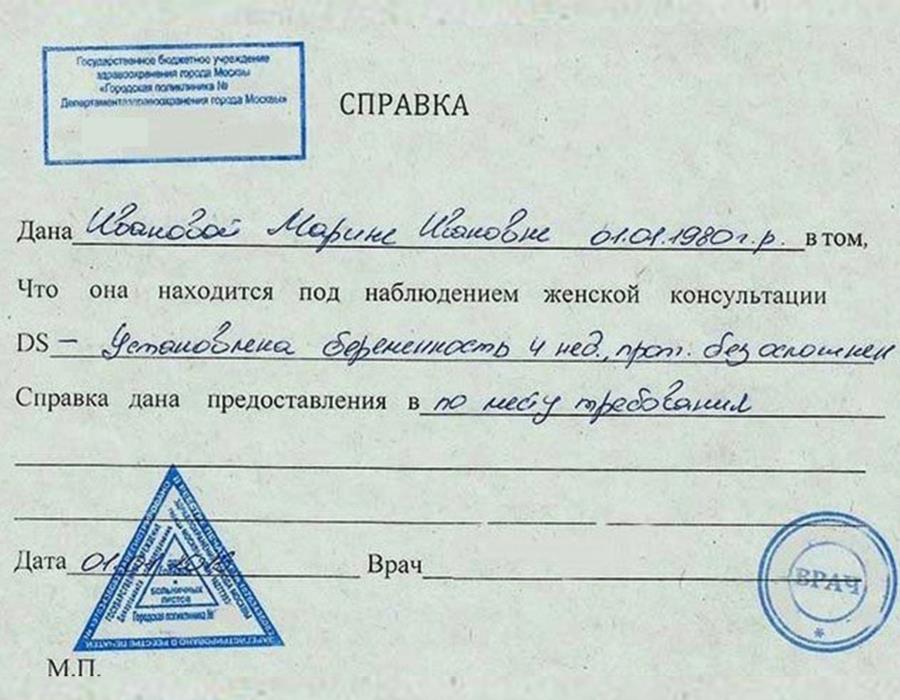 Государственное бюджетное учреждение
здравоохранения города Москвы
«Городская поликлиника №
Департамента здравоохранения города Москвы»
СПРАВКА
Дана Ивановой Марине Ивановне 01.01.1980г.р. в том,
Что она находится под наблюдением женской консультации
DS – Установлена беременность 4 нед., прот. без осложнен
Справка дана предоставления в по месту требования
Дата 01. Врач
БОЛЬНИЧНЫХ
ЛИСТОВ
Городская поликлиника №
ВРАЧ
М.П.